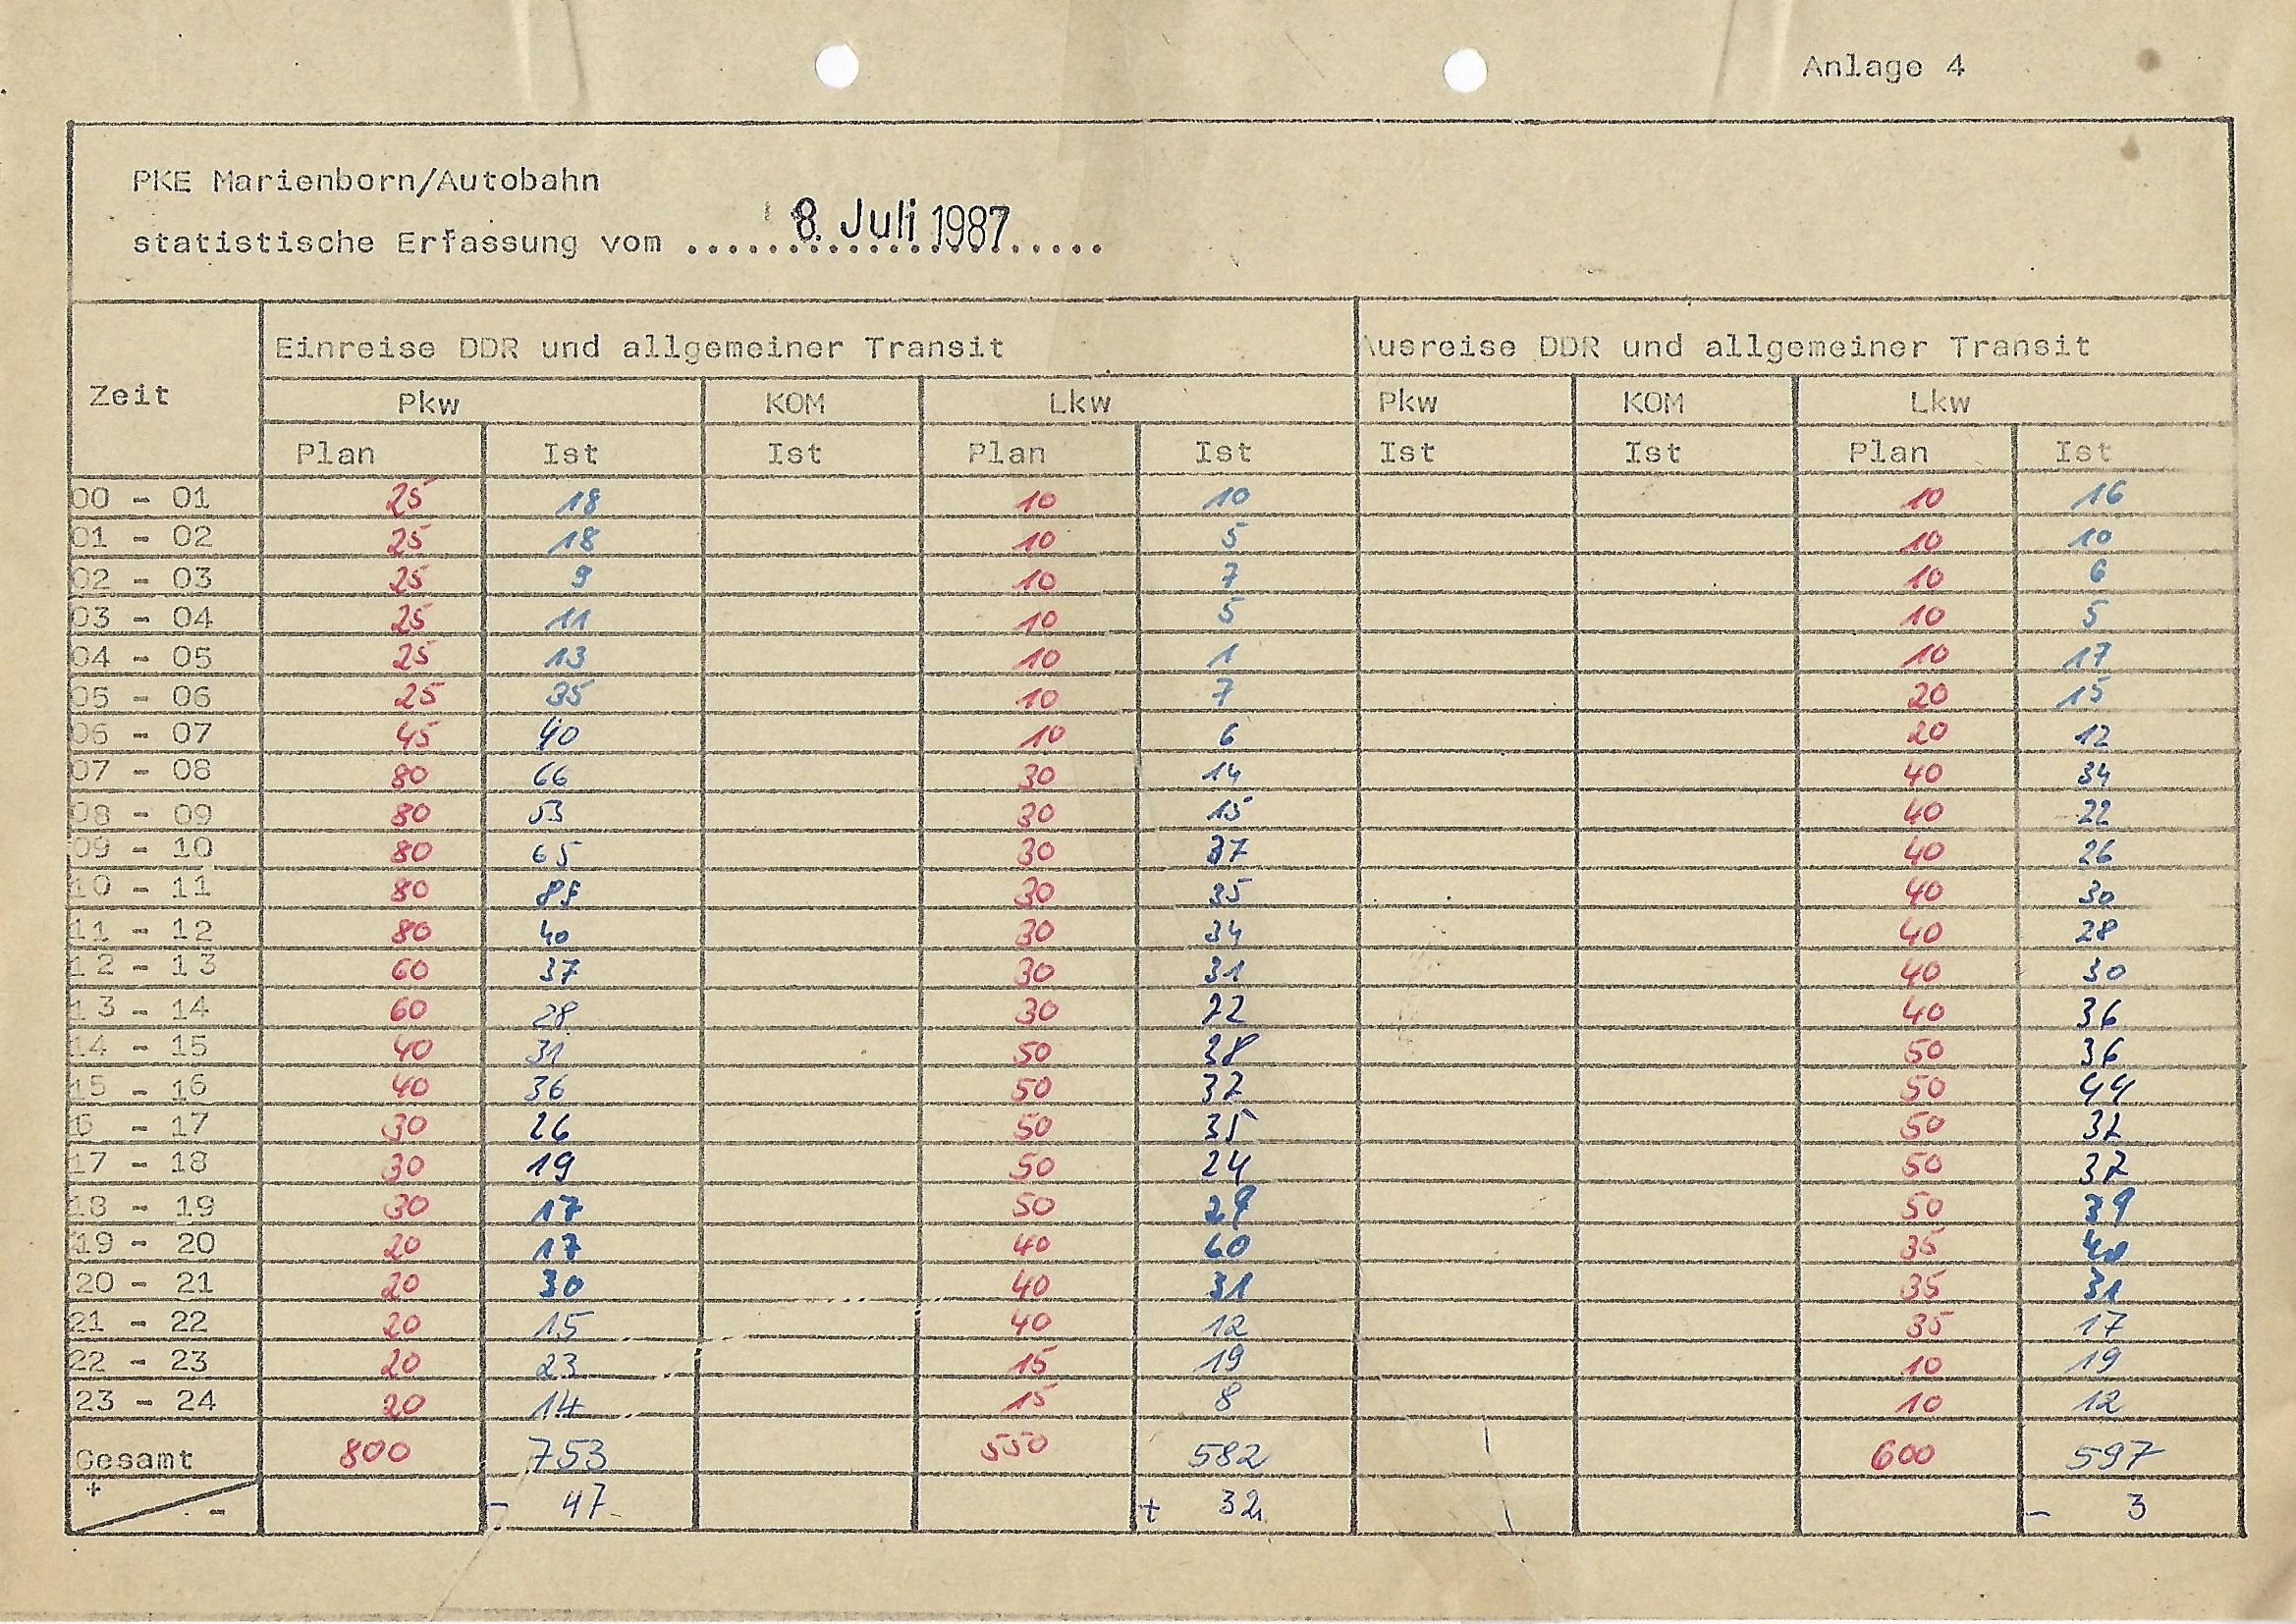 Anlage 4
PKE Marienborn/Autobahn
statistische Erfassung vom ..... 8. Juli 1987 .....
Zeit Einreise DDR und allgemeiner Transit Ausreise DDR und allgemeiner Transit
Pkw KOM Lkw Pkw KOM Lkw
Plan Ist Ist Plan Ist Ist Ist Plan Ist
00 - 01 25 18 10 10 10 16
01 - 02 25 18 10 5 10 10
02 - 03 25 9 10 7 10 6
03 - 04 25 11 10 5 10 5
04 - 05 25 13 10 1 10 17
05 - 06 25 35 10 7 20 15
06 - 07 45 40 10 6 20 12
07 - 08 80 66 30 14 40 34
08 - 09 80 53 30 15 40 22
09 - 10 80 65 30 37 40 26
10 - 11 80 30 35 40 30
11 - 12 80 40 30 34 40 28
12 - 13 60 37 30 31 40 30
13 - 14 60 28 30 22 40 36
14 - 15 40 31 50 38 50 36
15 - 16 40 36 50 50 44
6 - 17 30 26 50 35 50
17 - 18 30 19 50 24 50 37
18 - 19 30 17 50 29 50 39
19 - 20 20 17 40 60 35 40
20 - 21 20 30 40 31 35 31
21 - 22 20 15 40 12 35 17
22 - 23 20 23 15 19 10 19
23 - 24 20 14 15 8 10 12
Gesamt 800 753 550 582 600 597
+ - - 47 + 32 - 3